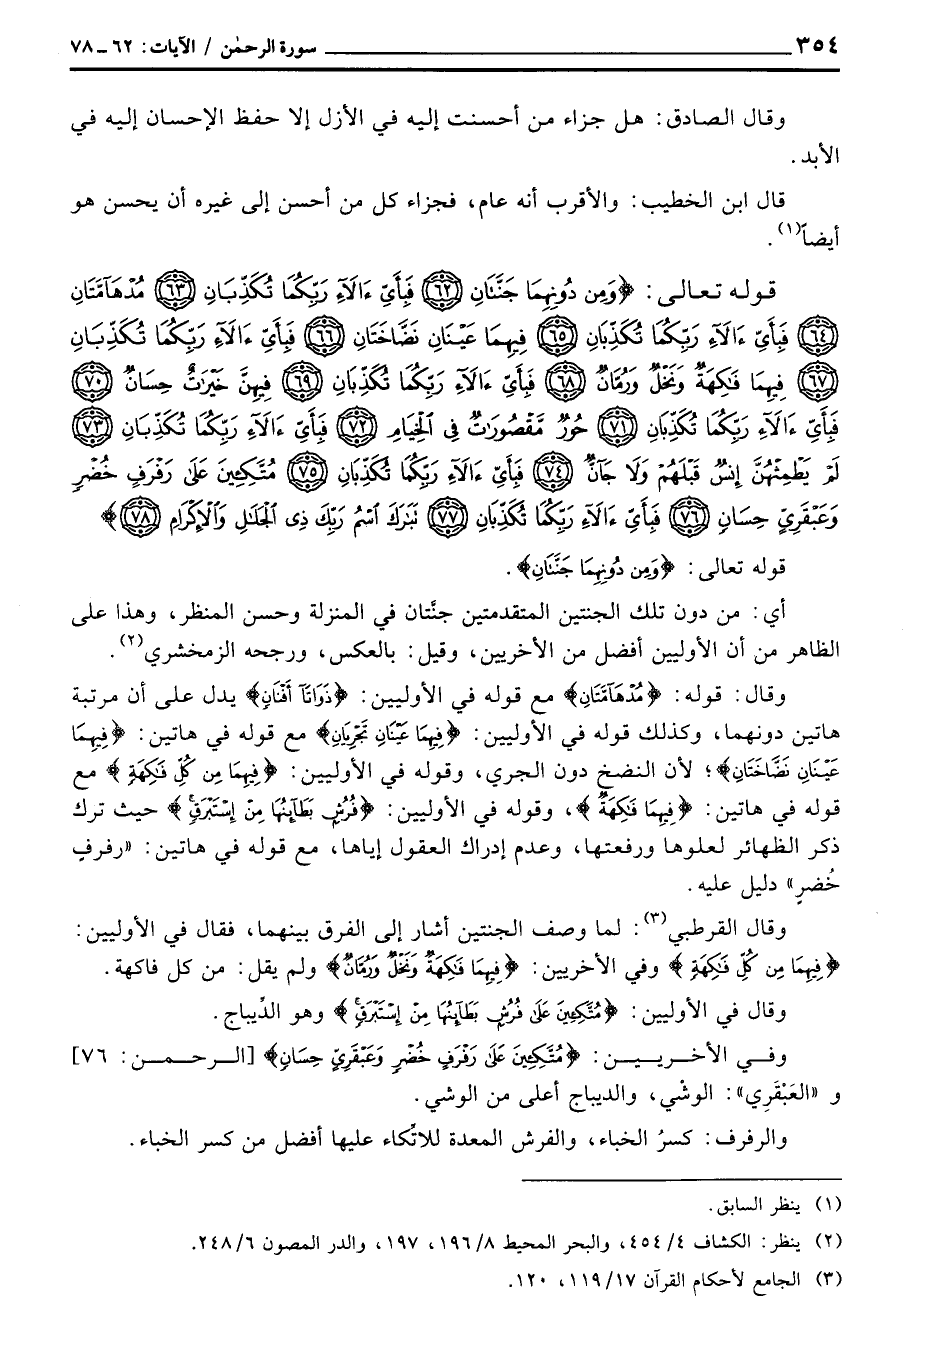 ٣٥٤ سورة الرحمٰن / الآيات: ٦٢ ـ ٧٨
وقال الصادق: هل جزاء من أحسنت إليه في الأزل إلا حفظ الإحسان إليه في
الأبد.
قال ابن الخطيب: والأقرب أنه عام، فجزاء كل من أحسن إلى غيره أن يحسن هو
أيضاً(١).
قوله تعالى: ﴿وَمِن دُونِهِمَا جَنَّتَانِ ﴿٦٢﴾ فَبِأَيِّ ءَالَآءِ رَبِّكُمَا تُكَذِّبَانِ ﴿٦٣﴾ مُدْهَآمَّتَانِ
﴿٦٤﴾ فَبِأَيِّ ءَالَآءِ رَبِّكُمَا تُكَذِّبَانِ ﴿٦٥﴾ فِيهِمَا عَيْنَانِ نَضَّاخَتَانِ ﴿٦٦﴾ فَبِأَيِّ ءَالَآءِ رَبِّكُمَا تُكَذِّبَانِ
﴿٦٧﴾ فِيهِمَا فَٰكِهَةٌ وَنَخْلٌ وَرُمَّانٌ ﴿٦٨﴾ فَبِأَيِّ ءَالَآءِ رَبِّكُمَا تُكَذِّبَانِ ﴿٦٩﴾ فِيهِنَّ خَيْرَٰتٌ حِسَانٌ ﴿٧٠﴾
فَبِأَيِّ ءَالَآءِ رَبِّكُمَا تُكَذِّبَانِ ﴿٧١﴾ حُورٌ مَّقْصُورَٰتٌ فِى ٱلْخِيَامِ ﴿٧٢﴾ فَبِأَيِّ ءَالَآءِ رَبِّكُمَا تُكَذِّبَانِ ﴿٧٣﴾
لَمْ يَطْمِثْهُنَّ إِنسٌ قَبْلَهُمْ وَلَا جَآنٌّ ﴿٧٤﴾ فَبِأَيِّ ءَالَآءِ رَبِّكُمَا تُكَذِّبَانِ ﴿٧٥﴾ مُتَّكِـِٔينَ عَلَىٰ رَفْرَفٍ خُضْرٍ
وَعَبْقَرِيٍّ حِسَانٍ ﴿٧٦﴾ فَبِأَيِّ ءَالَآءِ رَبِّكُمَا تُكَذِّبَانِ ﴿٧٧﴾ تَبَٰرَكَ ٱسْمُ رَبِّكَ ذِى ٱلْجَلَٰلِ وَٱلْإِكْرَامِ ﴿٧٨﴾﴾
قوله تعالى: ﴿وَمِن دُونِهِمَا جَنَّتَانِ﴾.
أي: من دون تلك الجنتين المتقدمتين جنَّتان في المنزلة وحسن المنظر، وهذا على
الظاهر من أن الأوليين أفضل من الأخريين، وقيل: بالعكس، ورجحه الزمخشري(٢).
وقال: قوله: ﴿مُدْهَآمَّتَانِ﴾ مع قوله في الأوليين: ﴿ذَوَاتَآ أَفْنَانٍ﴾ يدل على أن مرتبة
هاتين دونهما، وكذلك قوله في الأوليين: ﴿فِيهِمَا عَيْنَانِ تَجْرِيَانِ﴾ مع قوله في هاتين: ﴿فِيهِمَا
عَيْنَانِ نَضَّاخَتَانِ﴾؛ لأن النضخ دون الجري، وقوله في الأوليين: ﴿فِيهِمَا مِن كُلِّ فَٰكِهَةٍ﴾ مع
قوله في هاتين: ﴿فِيهِمَا فَٰكِهَةٌ﴾، وقوله في الأوليين: ﴿فُرُشٍ بَطَآئِنُهَا مِنْ إِسْتَبْرَقٍ﴾ حيث ترك
ذكر الظهائر لعلوها ورفعتها، وعدم إدراك العقول إياها، مع قوله في هاتين: «رفرفٍ
خُضرٍ» دليل عليه.
وقال القرطبي(٣): لما وصف الجنتين أشار إلى الفرق بينهما، فقال في الأوليين:
﴿فِيهِمَا مِن كُلِّ فَٰكِهَةٍ﴾ وفي الأخريين: ﴿فِيهِمَا فَٰكِهَةٌ وَنَخْلٌ وَرُمَّانٌ﴾ ولم يقل: من كل فاكهة.
وقال في الأوليين: ﴿مُتَّكِـِٔينَ عَلَىٰ فُرُشٍ بَطَآئِنُهَا مِنْ إِسْتَبْرَقٍ﴾ وهو الدِّيباج.
وفي الأخريين: ﴿مُتَّكِـِٔينَ عَلَىٰ رَفْرَفٍ خُضْرٍ وَعَبْقَرِيٍّ حِسَانٍ﴾ [الرحمن: ٧٦]
و «العَبْقَرِي»: الوشْي، والديباج أعلى من الوشي.
والرفرف: كسرُ الخباء، والفرش المعدة للاتِّكاء عليها أفضل من كسر الخباء.
(١) ينظر السابق.
(٢) ينظر: الكشاف ٤/ ٤٥٤، والبحر المحيط ٨/ ١٩٦، ١٩٧، والدر المصون ٦/ ٢٤٨.
(٣) الجامع لأحكام القرآن ١٧/ ١١٩، ١٢٠.